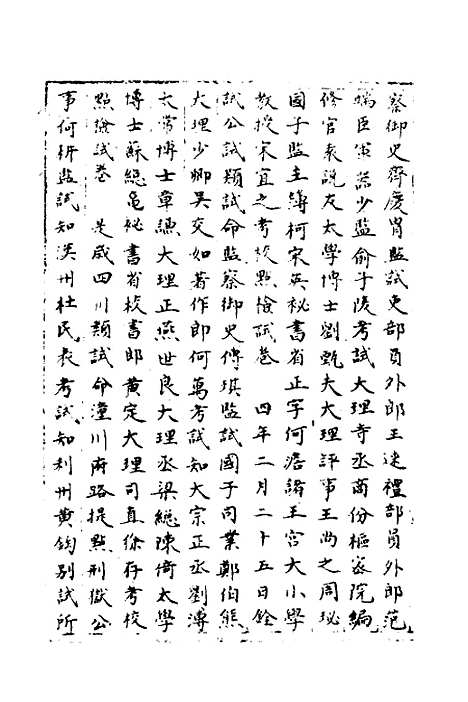 察御史齊慶胄監試吏部員外郎王述禮部員外郎范
端臣軍器少監俞于陵考試大理寺丞商份樞密院編
修官袁說友太學博士劉甄夫大理評事王尚之周珌
國子監主簿柯宋英祕書省正字何澹諸王宮大小學
教授宋宜之考校點檢試卷 四年二月二十五日銓
試公試類試命監察御史傅淇監試國子司業鄭伯熊
大理少卿吳交如著作郎何萬考試知大宗正丞劉溥
太常博士章謙大理正燕世良大理丞梁總陳倚太學
博士蘇總龜祕書省校書郎黃定大理司直徐存考校
點檢試卷 是歲四川類試命潼川府路提點刑獄公
事何耕監試知漢州杜民表考試知利州黃鈞別試所